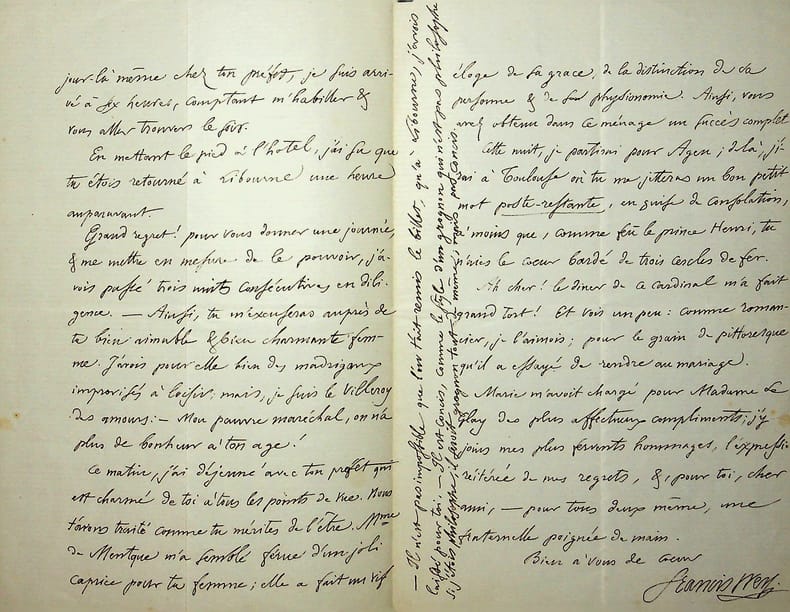 jour-là même chez ton préfet, je suis arri-
vé à six heures, comptant m'habiller &
vous aller trouver le soir.
En mettant le pied à l'hôtel, j'ai su que
tu étois retourné à Libourne une heure
auparavant.
Grand regret! pour vous donner une journée,
& me mettre en mesure de le pouvoir, j'a-
vois passé trois nuits consécutives en dili-
gence. — Ainsi, tu m'excuseras auprès de
ta bien aimable & bien charmante fem-
me. J'avois pour elle bien des madrigaux
improvisés à loisir; mais, je suis le Villeroy
des amours: — Mon pauvre maréchal, on n'a
plus de bonheur à ton age!
Ce matin, j'ai déjeuné avec ton préfet qui
est charmé de toi à tous les points de vue. Nous
t'avons traité comme tu mérites de l'être. Mme
de Mentque m'a semblé férue d'un joli
caprice pour ta femme; elle a fait un vif
éloge de sa grace, de la distinction de sa
personne & de sa physionomie. Ainsi, vous
avez obtenu dans ce ménage un succès complet
Cette nuit, je partirai pour Agen; de là, j'i-
rai à Toulouse où tu me jetteras un bon petit
mot poste-restante, en guise de consolation,
à moins que, comme feu le prince Henri, tu
n'aies le coeur bardé de trois cercles de fer.
Ah cher! le diner de ce cardinal m'a fait
grand tort! Et vois un peu: comme roman-
cier, je l'aimois; pour le grain de pittoresque
qu'il a essayé de rendre au mariage.
Marie m'avoit chargé pour Madame Le
Play des plus affectueux compliments; j'y
joins mes plus fervents hommages, l'expressi
réitérée de mes regrets, &, pour toi, cher
ami, — pour tous deux même, une
fraternelle poignée de main.
Bien à vous de coeur
Francis Wey.
— Il n'est pas impossible que l'on t'ait remis le billet, qu'à Libourne, j'avois
laissé pour toi. — Il est concis, comme le style d'un grognon qui n'est pas philosophe
Si j'étois philosophe, il seroit grognon tout de même; mais pas concis.